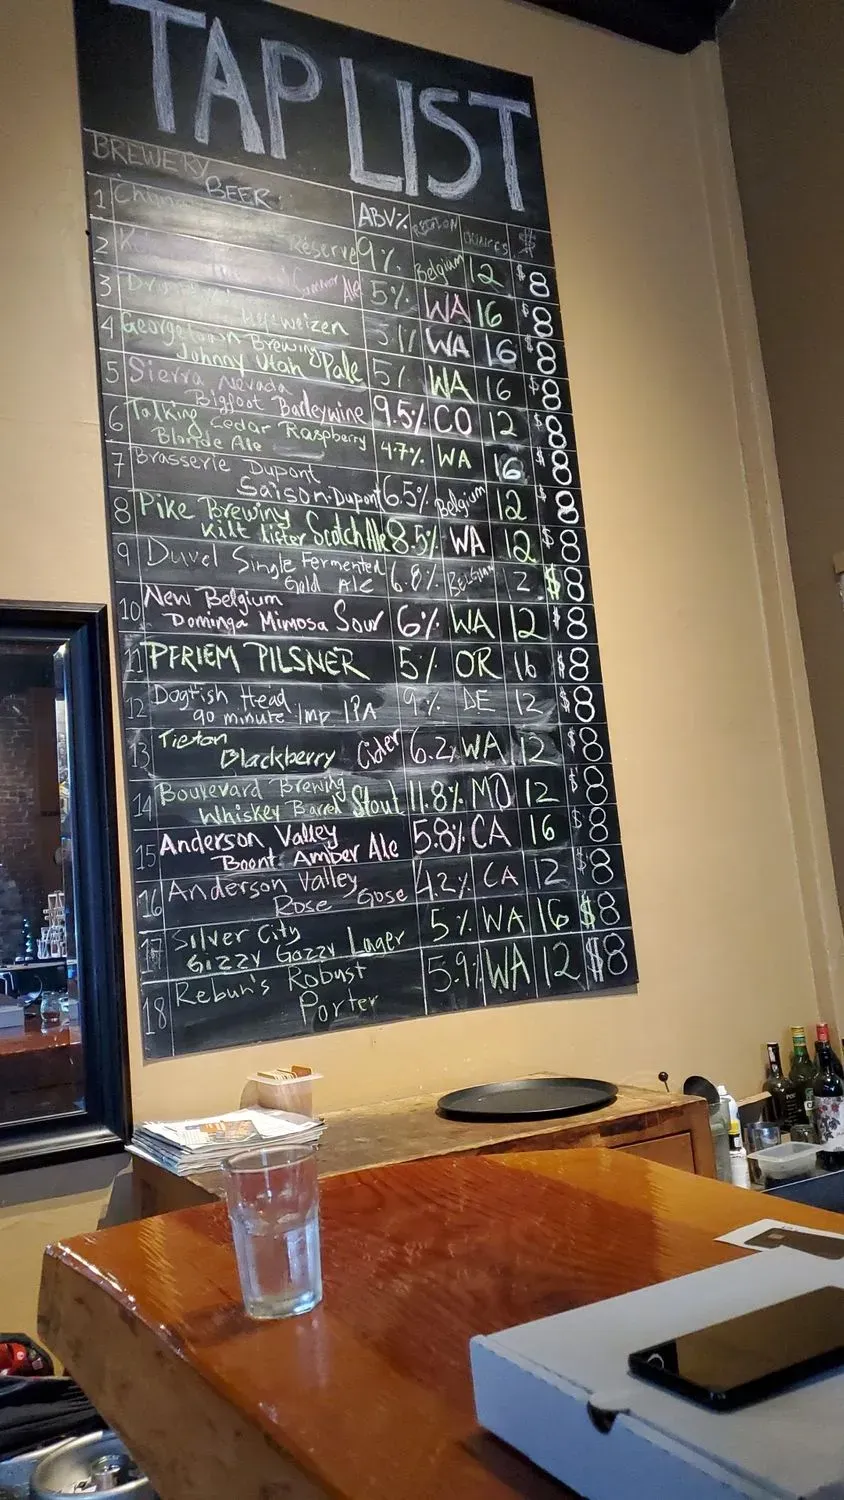 TAP LIST
BREWERY BEER ABV% REGION OUNCES $
1 Réserve 9% Belgium 12 $8
2 Summer Ale 5% WA 16 $8
3 Hefeweizen 5% WA 16 $8
4 Georgetown Brewing
Johnny Utah Pale 5% WA 16 $8
5 Sierra Nevada
Bigfoot Barleywine 9.5% CO 12 $8
6 Talking Cedar Raspberry
Blonde Ale 4.7% WA 16 $8
7 Brasserie Dupont
Saison Dupont 6.5% Belgium 12 $8
8 Pike Brewing
Kilt Lifter Scotch Ale 8.5% WA 12 $8
9 Duvel Single Fermented
Gold Ale 6.8% BELGIUM 2 $8
10 New Belgium
Dominga Mimosa Sour 6% WA 12 $8
11 PFRIEM PILSNER 5% OR 16 $8
12 Dogfish Head
90 minute Imp IPA 9% DE 12 $8
13 Tieton
Blackberry Cider 6.2% WA 12 $8
14 Boulevard Brewing
Whiskey Barrel Stout 11.8% MO 12 $8
15 Anderson Valley
Boont Amber Ale 5.8% CA 16 $8
16 Anderson Valley
Rose Gose 4.2% CA 12 $8
17 Silver City
Gizzy Gazzy Lager 5% WA 16 $8
18 Rebun's Robust
Porter 5.9% WA 12 $8